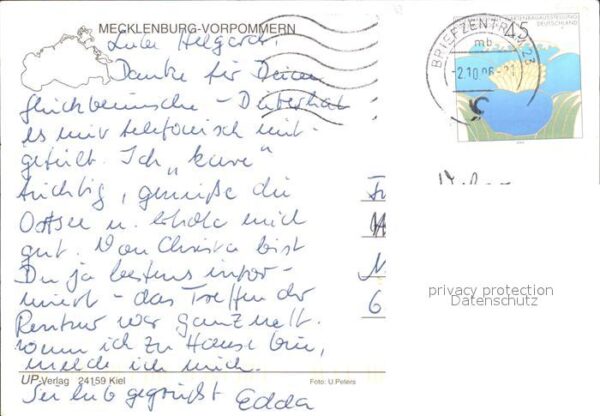 MECKLENBURG-VORPOMMERN
Liebe Helgard,
Danke für Deine
Glückwünsche - Dieter hat
es mir telefonisch mit-
geteilt. Ich "kure"
tüchtig, genieße die
Ostsee u. erhole mich
gut. Von Christa bist
Du ja bestens infor-
miert - das Treffen der
Rentner war ganz nett.
Wenn ich zu Hause bin,
melde ich mich.
UP-Verlag 24159 Kiel
Foto: U.Peters
Sei lieb gegrüßt Edda
45
DEUTSCHLAND
BRIEFZENTRUM 23
mb
-2.10.06-21
privacy protection
Datenschutz